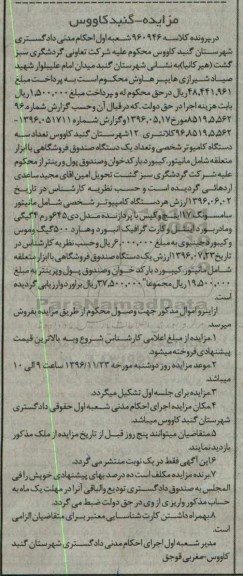 مزایده-گنبدکاووس
در پرونده کلاسه ۹۶۰۹۴۶ شعبه اول احکام مدنی دادگستری
شهرستان گنبد کاووس محکوم علیه شرکت تعاونی گردشگری سبز
گشت (هیرکانیا) به نشانی شهرستان گنبد میدان امام علی بلوار شهید
صیاد شیرازی هایپر هاوش محکوم است به پرداخت مبلغ
۴۸,۴۴۱,۹۶۱ ریال در حق محکوم له و پرداخت مبلغ ۱,۵۰۰,۰۰۰ ریال
بابت هزینه اجرا در حق دولت. که در قبال آن و حسب گزارش شماره ۹۶
۹۶۸۵۱۹,۵۵۶۲ کلانتری ۱۲ شهرستان گنبد کاووس تعداد سه
دستگاه کامپیوتر شخصی و تعداد یک دستگاه صندوق فروشگاهی با ابزار
متعلقه شامل مانیتور کیبورد بارکد خوان وصندوق پول و پرینتر از محکوم
علیه شرکت گردشگری سبز گشت تحویل امین اقای مجید ساعدی
اردهائی گردیده است و حسب نظریه کارشناس در تاریخ
۱۳۹۶,۰۶,۰۲ ارزش هر دستگاه کامپیوتر شخصی شامل مانیتور
سامسونگ ۱۷ اینچ و کیس با پردازنده مدل دی ۶۴۵ و رم ۴ گیگی
ومادربورد اینتل و کارت گرافیک انبورد و هارد ۵۰۰ گیگ و موس
و کیبورد جمعا به مبلغ ۶,۰۰۰,۰۰۰ ریال و حسب نظریه کارشناس در
تاریخ ۱۳۹۶,۰۷,۲۳ ارزش یک دستگاه صندوق فروشگاهی با ابزار متعلقه
شامل مانیتور کیبورد بارکد خوان وصندوق پول و پرینتر به مبلغ
۱۹,۵۰۰,۰۰۰ ریال مجموعا ۳۷,۵۰۰,۰۰۰ ریال براورد و ارزیابی گردیده
است.
از اینرو اموال مذکور جهت وصول محکوم از طریق مزایده بفروش
میرسد.
۱.مزایده از مبلغ اعلامی کارشناس شروع و به بالاترین قیمت
پیشنهادی فروخته میشود.
۲.موعد مزایده روز دوشنبه مورخه ۱۳۹۶/۱۱/۲۳ ساعت ۹ الی ۱۰
میباشد.
۳.مزایده برای جلسه اول تشکیل میگردد.
۴.مکان مزایده اجرای احکام مدنی شعبه اول حقوقی دادگستری
شهرستان گنبد کاووس میباشد.
۵.متقاضیان میتوانند پنج روز قبل از تاریخ مزایده از ملک مذکور
بازدید نمایند.
۶.این آگهی فقط در یک نوبت منتشر می گردد.
۷.برنده مزایده مکلف است ده درصد بهای پیشنهادی خویش را فی
المجلس به صندوق دادگستری تودیع والباقی آنرا در مهلت یک ماه به
حساب مذکور واریز و از وی در حق دولت ضبط می گردد.
۸.بهمراه داشتن کارت شناسایی معتبر برای متقاضیان الزامی
است.
مدیر شعبه اول اجرای احکام مدنی دادگستری شهرستان گنبد
کاووس-مغربی قوجق